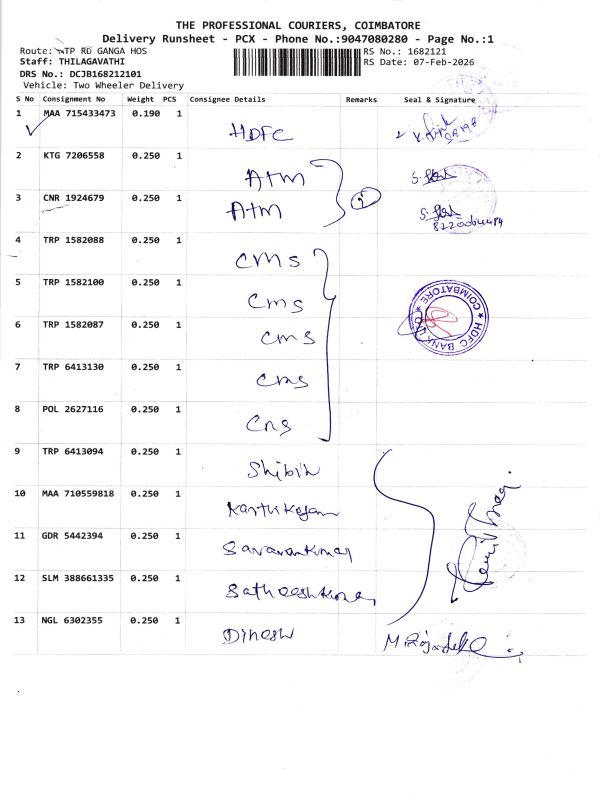 THE PROFESSIONAL COURIERS, COIMBATORE
Delivery Runsheet - PCX - Phone No.:9047080280 - Page No.:1
Route: NTP RD GANGA HOS RS No.: 1682121
Staff: THILAGAVATHI RS Date: 07-Feb-2026
DRS No.: DCJB168212101
Vehicle: Two Wheeler Delivery
S No Consignment No Weight PCS Consignee Details Remarks Seal & Signature
1 MAA 715433473 0.190 1 HDFC
2 KTG 7206558 0.250 1 ATM
3 CNR 1924679 0.250 1 ATM
4 TRP 1582088 0.250 1 CMS
5 TRP 1582100 0.250 1 CMS
HDFC BANK LTD COIMBATORE
6 TRP 1582087 0.250 1 CMS
7 TRP 6413130 0.250 1 CMS
8 POL 2627116 0.250 1 CMS
9 TRP 6413094 0.250 1 Shibin
10 MAA 710559818 0.250 1
11 GDR 5442394 0.250 1 Saravankumar
12 SLM 388661335 0.250 1 Satheeshkumar
13 NGL 6302355 0.250 1 Dinesh